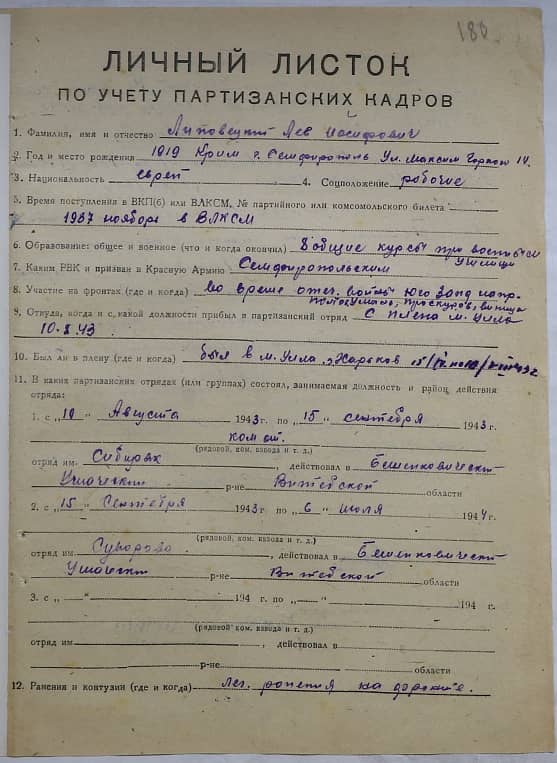 180
ЛИЧНЫЙ ЛИСТОК
ПО УЧЕТУ ПАРТИЗАНСКИХ КАДРОВ
1. Фамилия, имя и отчество Липовецкий Лев Иосифович
2. Год и место рождения 1919 Крим г. Семфирополь Ул. Максим Горкого 14.
3. Национальность еврей 4. Соцположение рабочие
5. Время поступления в ВКП(б) или ВЛКСМ, № партийного или комсомольского билета
1937 ноября в ВЛКСМ
6. Образование: общее и военное (что и когда окончил) 8 общие курсы при
училищи
7. Каким РВК и призван в Красную Армию Семфиропольским
8. Участие на фронтах (где и когда) Во время отеч. войны юго запд напр.
проскуров, виница
9. Откуда, когда и с какой должности прибыл в партизанский отряд С плена м. Улла
10.8.43
10. Был ли в плену (где и когда) был в м. Улла, Харьков
11. В каких партизанских отрядах (или группах) состоял, занимаемая должность и район действия
отряда:
1. с „10 " Августа 1943 г. по „15 " сентября 1943 г.
ком от.
(рядовой, ком. взвода и т. д.)
отряд им. Сибиряк , действовал в Бешенковическ
Ушаческ р-не Витебской области
2. с „15 " Сентября 1943 г. по „6 " июля 1944 г.
(рядовой, ком. взвода и т. д.)
отряд им Суворова , действовал в Бешенковическ
Ушаческ р-не Витебской области
3. с „ — " 194 г. по „ — " 194 г.
(рядовой ком. взвода и т. д.)
отряд им , действовал в
р-не области
12. Ранения и контузии (где и когда) Лег. ранения на